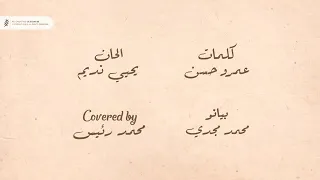 كلمات
عمرو حسن
الحان
يحيي نديم
بيانو
محمد مجدي
Covered by
محمد رئيس